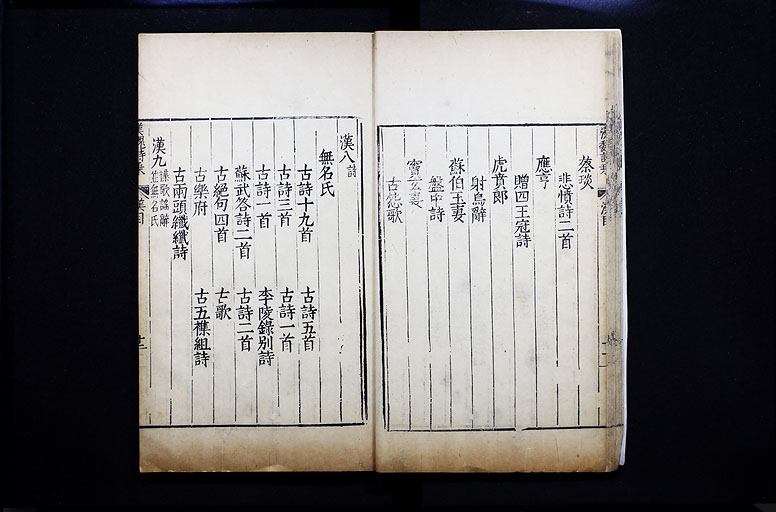 蔡琰
悲憤詩二首
應亨
贈四王冠詩
虎賁郎
射烏辭
蘇伯玉妻
盤中詩
竇玄妻
古怨歌
漢八 詩
無名氏
古詩十九首 古詩五首
古詩三首 古詩一首
古詩一首 李陵錄別詩
蘇武答詩二首 古詩二首
古絕句四首 古歌
古樂府 古五襍組詩
古兩頭纖纖詩
漢九 襍歌謠辭 並無名氏